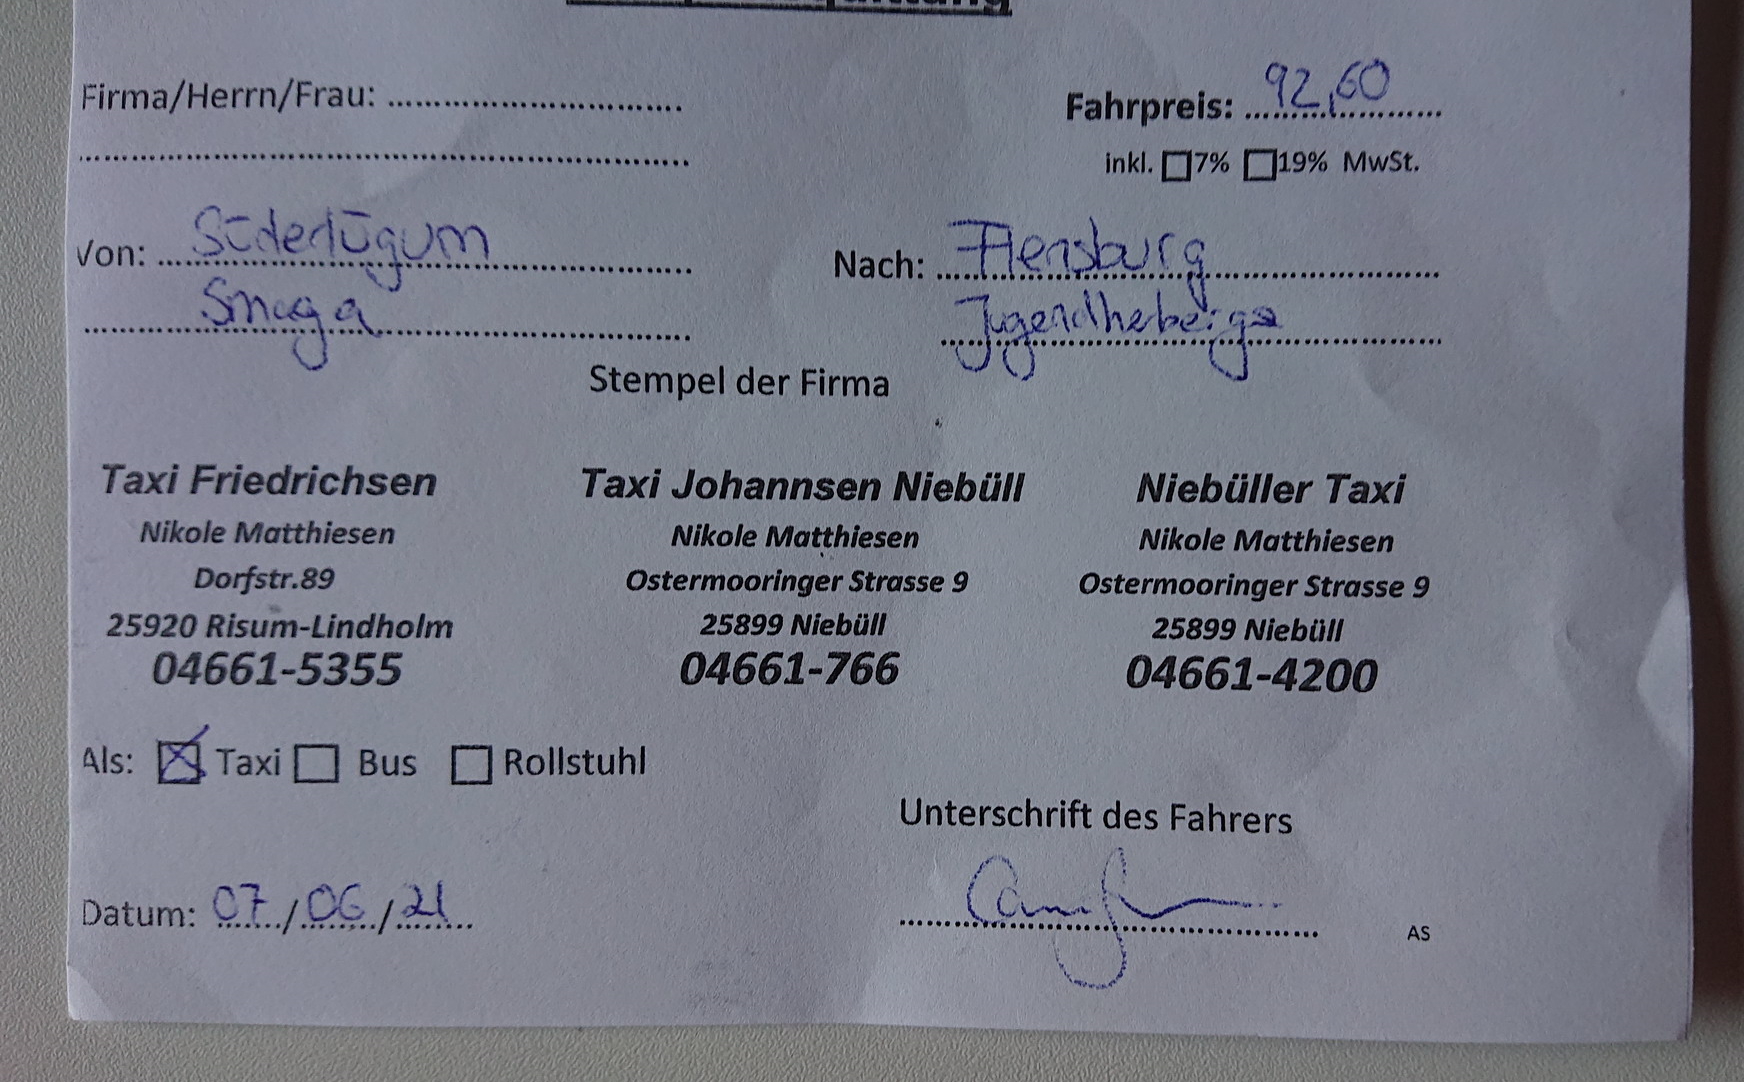 Firma/Herrn/Frau: ........................................
................................................................................
Fahrpreis: 92,60
inkl. ☐ 7% ☐ 19% MwSt.
Von: Süderlügum
Smaga
Nach: Flensburg
Jugendherberge
Stempel der Firma
Taxi Friedrichsen
Nikole Matthiesen
Dorfstr.89
25920 Risum-Lindholm
04661-5355
Taxi Johannsen Niebüll
Nikole Matthiesen
Ostermooringer Strasse 9
25899 Niebüll
04661-766
Niebüller Taxi
Nikole Matthiesen
Ostermooringer Strasse 9
25899 Niebüll
04661-4200
Als: ☒ Taxi ☐ Bus ☐ Rollstuhl
Unterschrift des Fahrers
Datum: 07/06/21
AS